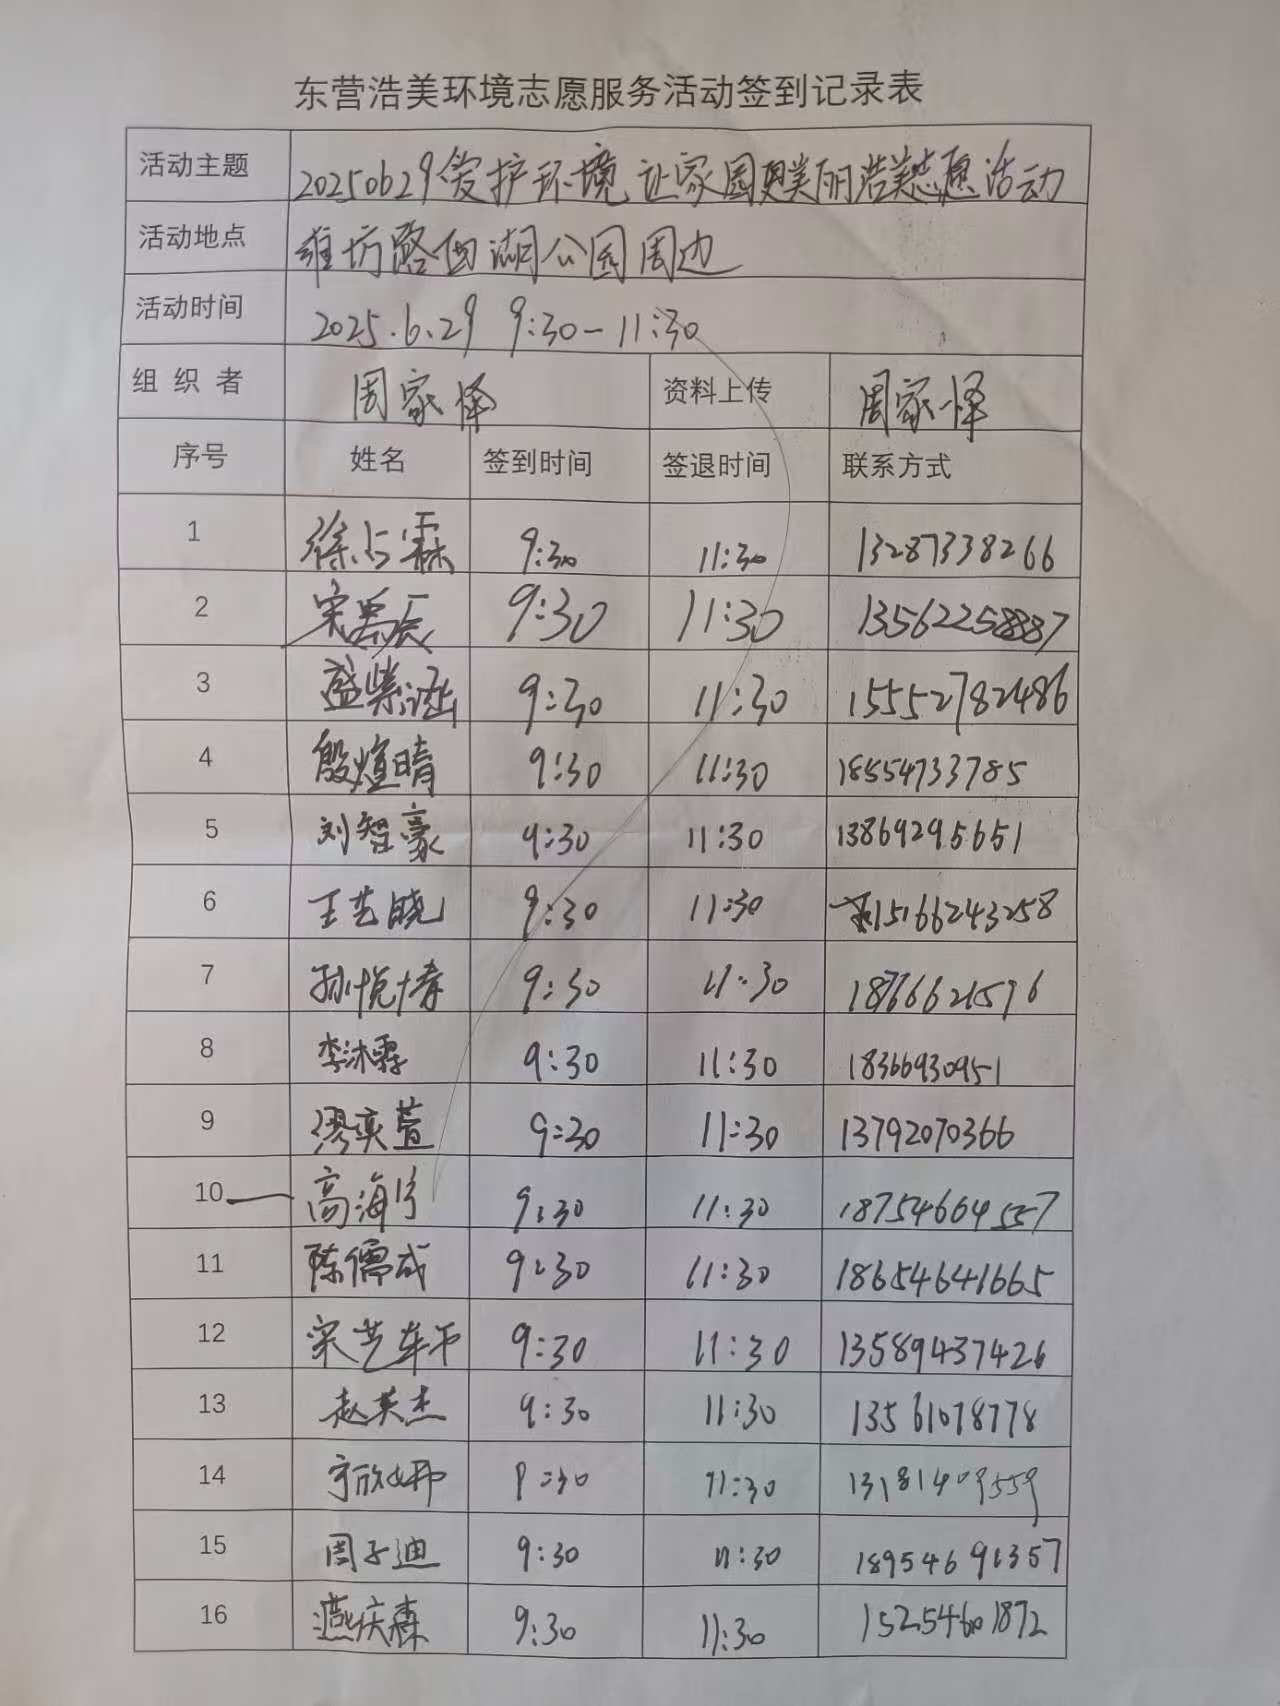 东营浩美环境志愿服务活动签到记录表
活动主题 20250629爱护环境 让家园更美丽浩美志愿活动
活动地点 潍坊路西湖公园周边
活动时间 2025.6.29 9:30-11:30
组织者 周家怿 资料上传 周家怿
序号 姓名 签到时间 签退时间 联系方式
1 徐占霖 9:30 11:30 13287338266
2 宋禹辰 9:30 11:30 13562258887
3 盛紫涵 9:30 11:30 15552782486
4 殷煊晴 9:30 11:30 18554733785
5 刘智豪 9:30 11:30 13869295651
6 王艺晓 9:30 11:30 15166243258
7 孙悦 9:30 11:30
8 李沐霏 9:30 11:30 18366930951
9 廖奕萱 9:30 11:30 13792070366
10 高海 9:30 11:30 18754664557
11 陈儒成 9:30 11:30 18654641665
12 宋艺 9:30 11:30 13589437426
13 赵英杰 9:30 11:30 13561078778
14 9:30 11:30 13181409559
15 周子迪 9:30 11:30 18954691357
16 燕庆森 9:30 11:30 15254601872